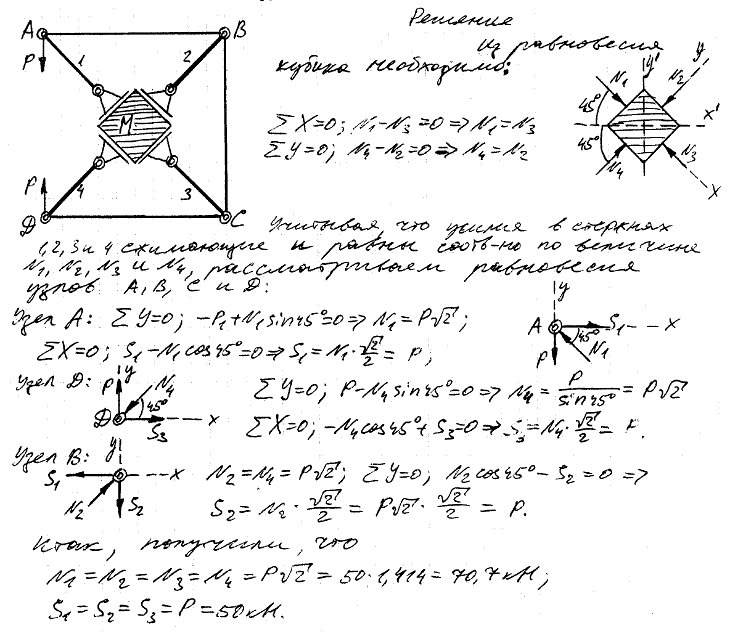 Решение
Из равновесия
кубика необходимо:
ΣX=0; N₁-N₃=0 => N₁=N₃
ΣY=0; N₄-N₂=0 => N₄=N₂
A
B
P
1
2
M
P
4
3
Д
C
y'
y
N₁
N₂
45°
x'
45°
N₄
N₃
x
Учитывая, что усилия в стержнях
1,2,3 и 4 сжимающие и равны соотв-но по величине
N₁, N₂, N₃ и N₄, рассматриваем равновесия
узлов A, B, C и Д:
Узел A: ΣY=0; -P₁+N₁sin45°=0 => N₁=P√2;
ΣX=0; S₁-N₁cos45°=0 => S₁=N₁·√2/2=P,
y
A
S₁
x
45°
P
N₁
Узел Д:
y
P
N₄
45°
Д
S₃
x
ΣY=0; P-N₄sin45°=0 => N₄=P/sin45°=P√2
ΣX=0; -N₄cos45°+S₃=0 => S₃=N₄·√2/2=P.
Узел B:
y
S₁
x
N₂
S₂
N₂=N₄=P√2; ΣY=0; N₂cos45°-S₂=0 =>
S₂=N₂·√2/2=P√2·√2/2=P.
Итак, получили, что
N₁=N₂=N₃=N₄=P√2=50·1,414=70,7кН;
S₁=S₂=S₃=P=50кН.